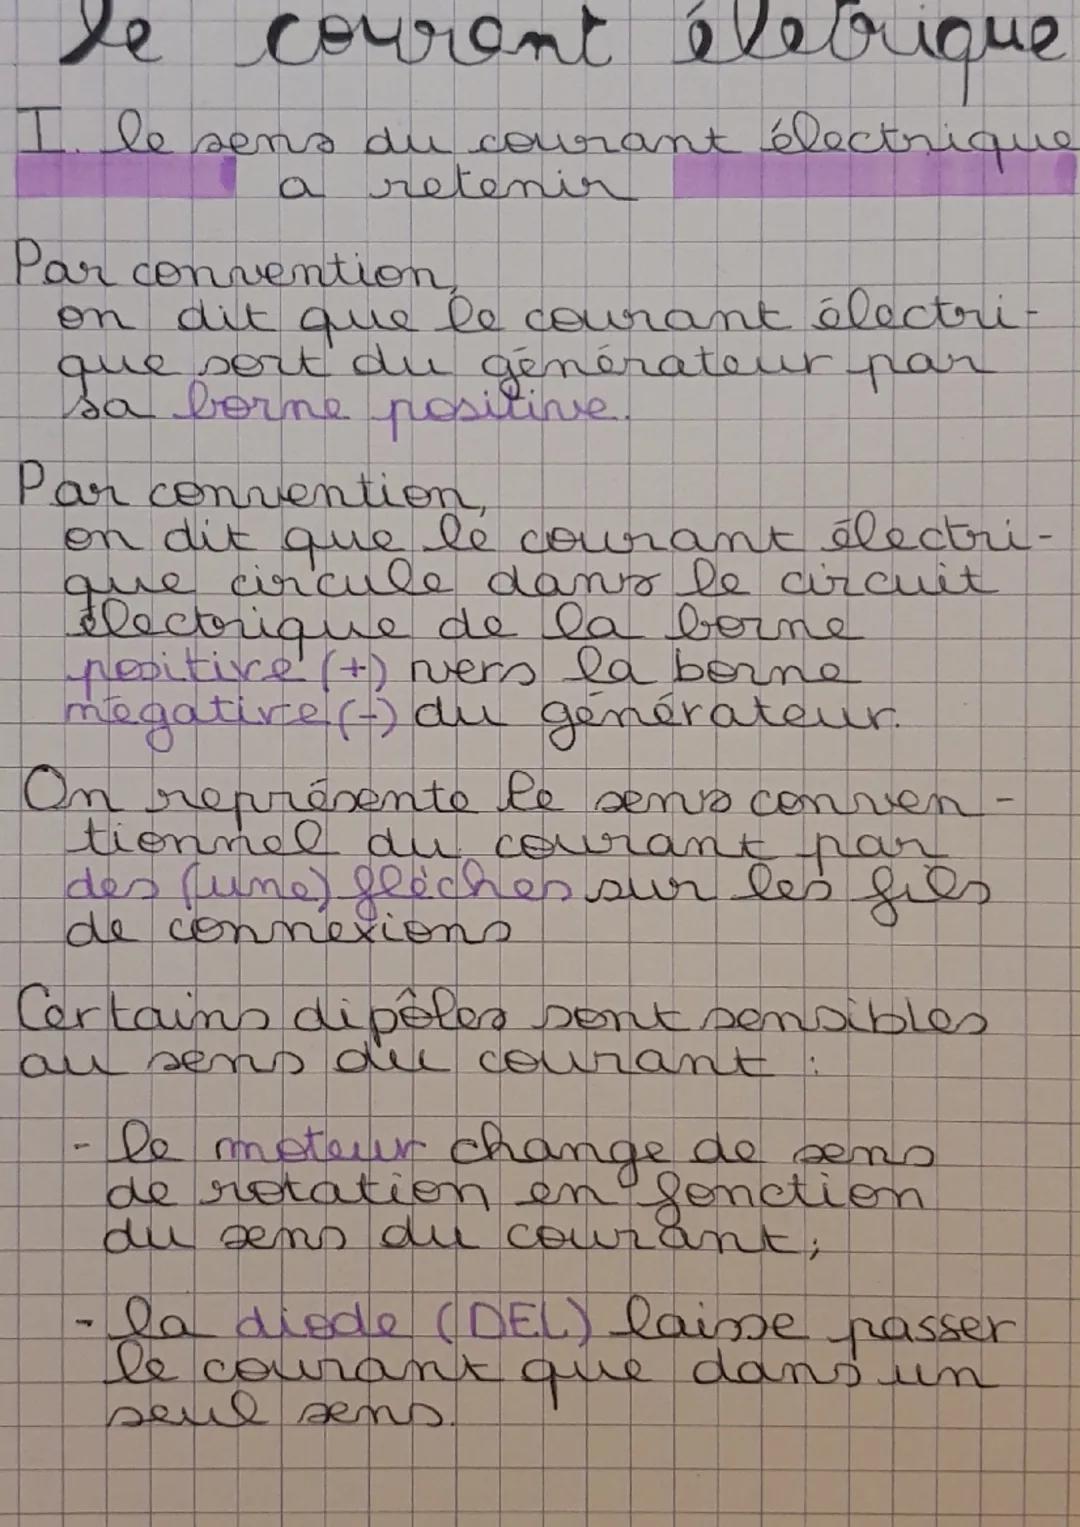 le courant életrique
I. le sens du courant électrique
a retenir
Par convention,
on dit que le courant électri-
que sort du générateur par
sa borne positive.
Par convention,
on dit que le courant électri-
que circule dans le circuit
électrique de la borne
positive (+) vers la borne
négative (-) du générateur.
On représente le sens conven-
tionnel du courant par
des (une) flèches sur les fils
de connexions
Certains dipôles sont sensibles
au sens du courant :
- le moteur change de sens
de rotation en fonction
du sens du courant;
- la diode (DEL) laisse passer
le courant que dans un
seul sens.